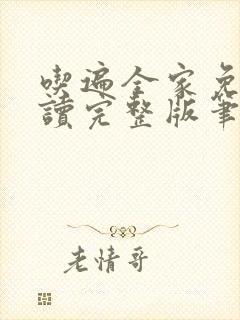 喫遍全家免
讀完整版筆
老情哥